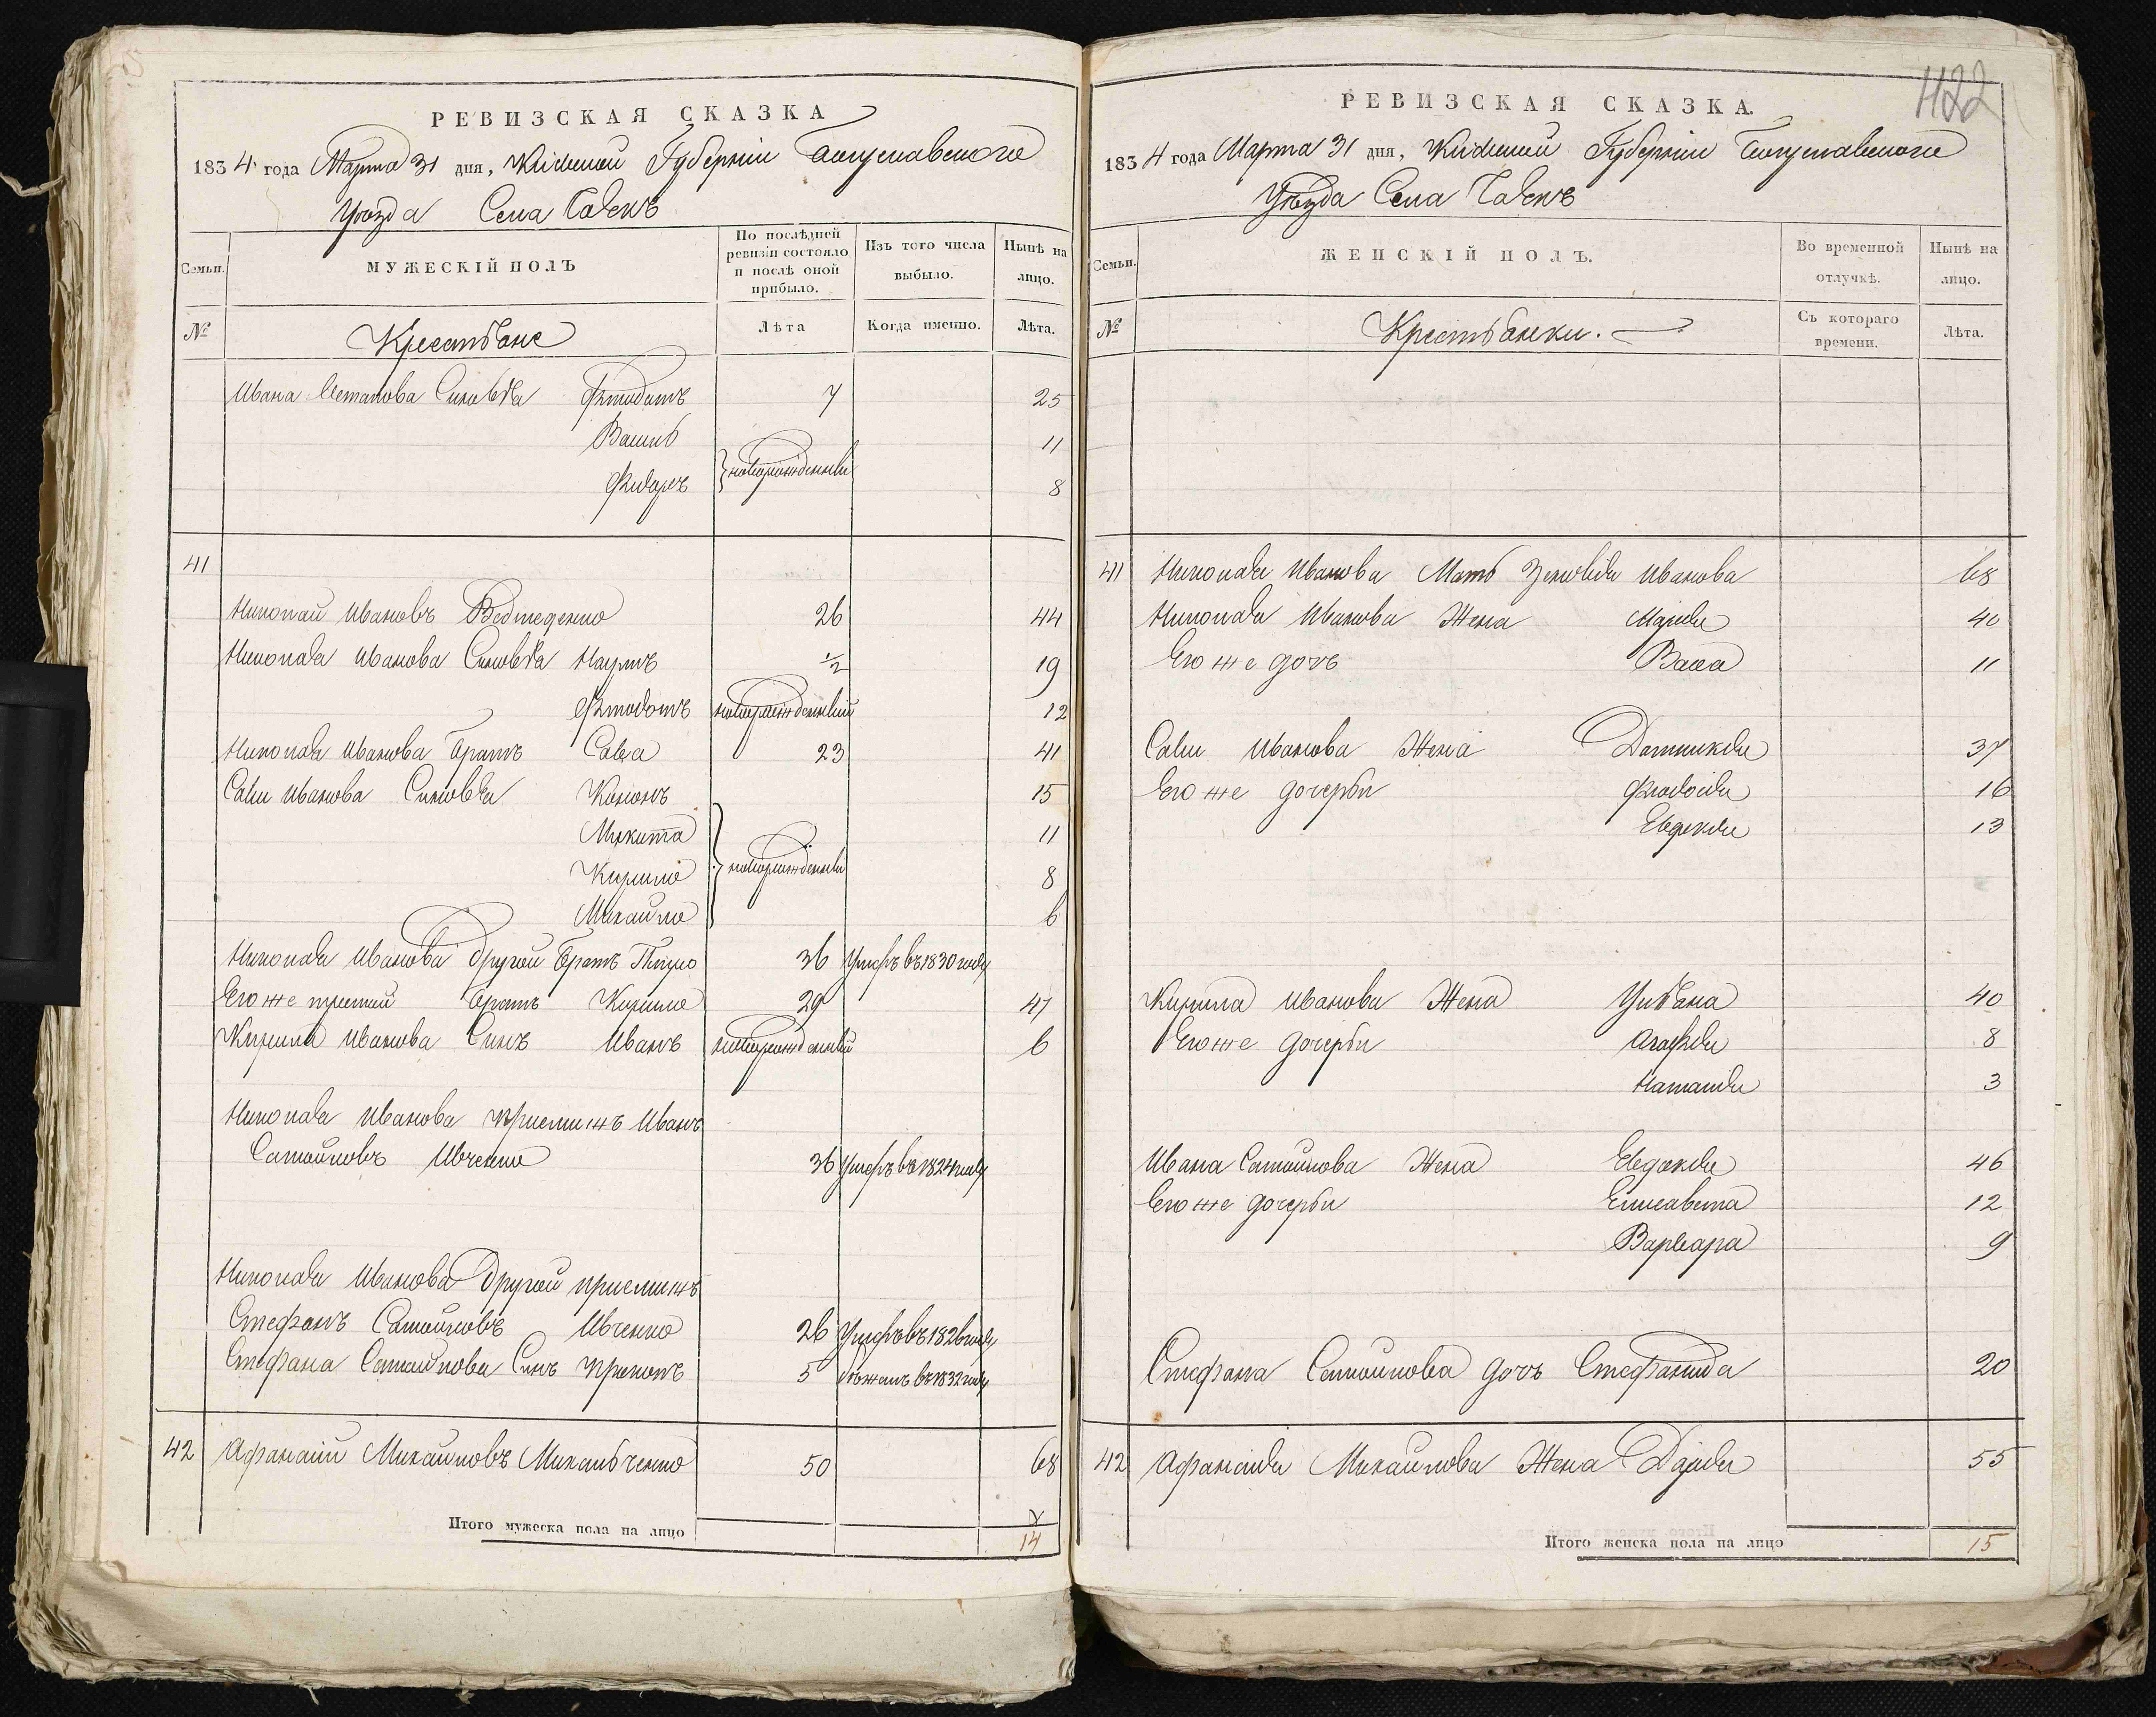 РЕВИЗСКАЯ СКАЗКА
1834 года Марта 31 дня, Кіевской Губерніи Богуславского
Уѣзда Села
Семьи.
МУЖЕСКІЙ ПОЛЪ
По послѣдней ревизіи состояло и послѣ оной прибыло.
Изъ того числа выбыло.
Нынѣ на лицо.
№
Крестьяне
Лѣта
Когда именно.
Лѣта.
Ивана Степанова Сыновья Феодотъ 7 25
Василь 11
Федоръ новорожденные 8
41
Николай Ивановъ 26 44
Николая Иванова Сыновья Наумъ ½ 19
Феодотъ новорожденный 12
Николая Иванова братъ Сава 23 41
Савы Иванова Сыновья Кононъ 15
Микита 11
Кирило новорожденные 8
Михайло 6
Николая Иванова другой братъ 36 Умеръ въ 1830 году
Его же третій братъ Кирило 29 47
Кирила Иванова Сынъ Иванъ новорожденный 6
Николая Иванова приемышъ Иванъ
Самойловъ Ивченко 36 Умеръ въ 1824 году
Николая Иванова другой приемышъ
Стефанъ Самойловъ Ивченко 26 Умеръ въ 1826 году
Стефана Самойлова Сынъ Прокопъ 5 бежалъ въ 1832 году
42 Афанасий Михайловъ Михальченко 50 68
Итого мужеска пола на лицо 14
422
РЕВИЗСКАЯ СКАЗКА.
1834 года Марта 31 дня, Кіевской Губерніи Богуславского
Уѣзда Села
Семьи.
ЖЕНСКІЙ ПОЛЪ.
Во временной отлучкѣ.
Нынѣ на лицо.
№
Крестьянки.
Съ котораго времени.
Лѣта.
41 Николая Иванова Мать Зеновія Иванова 68
Николая Иванова Жена Марія 40
Его же дочь Васса 11
Савы Иванова Жена Домникія 37
Его же дочерьи Феодосія 16
Евдокія 13
Кирила Иванова Жена Ульяна 40
Его же дочерьи Агафія 8
Наталія 3
Ивана Самойлова Жена Евдокія 46
Его же дочерьи Елисавета 12
Варвара 9
Стефана Самойлова дочь Стефанида 20
42 Афанасія Михайлова Жена Дарія 55
Итого женска пола на лицо 15